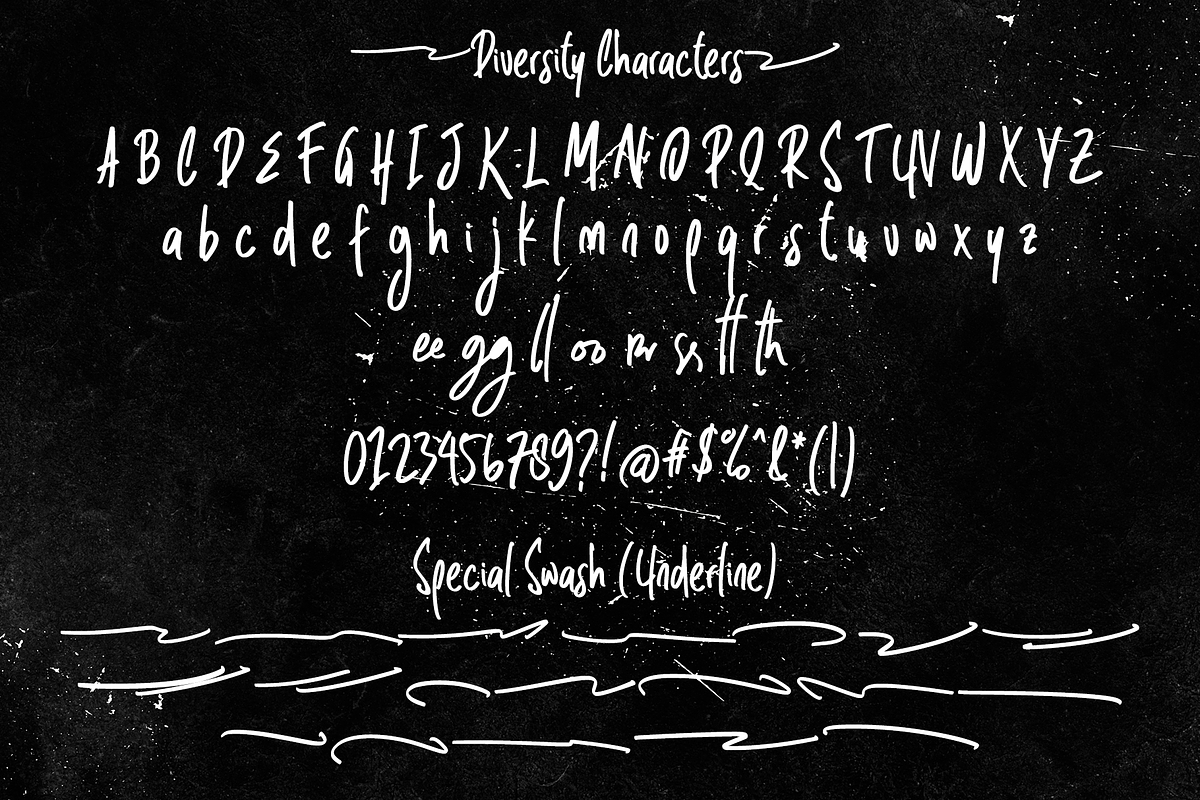 Diversity Characters
A B C D E F G H I J K L M N O P Q R S T U V W X Y Z
a b c d e f g h i j k l m n o p q r s t u v w x y z
ee gg ll oo rr ss tt th
0123456789?!@#$%^&*(|)
Special Swash (Underline)